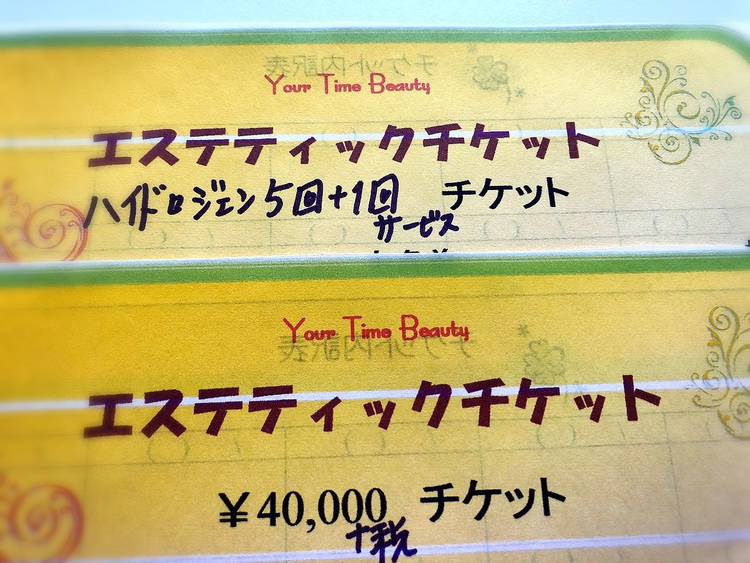 Your Time Beauty
エステティックチケット
ハイドロジェン5回+1回 チケット
サービス
Your Time Beauty
エステティックチケット
¥40,000 チケット
+税